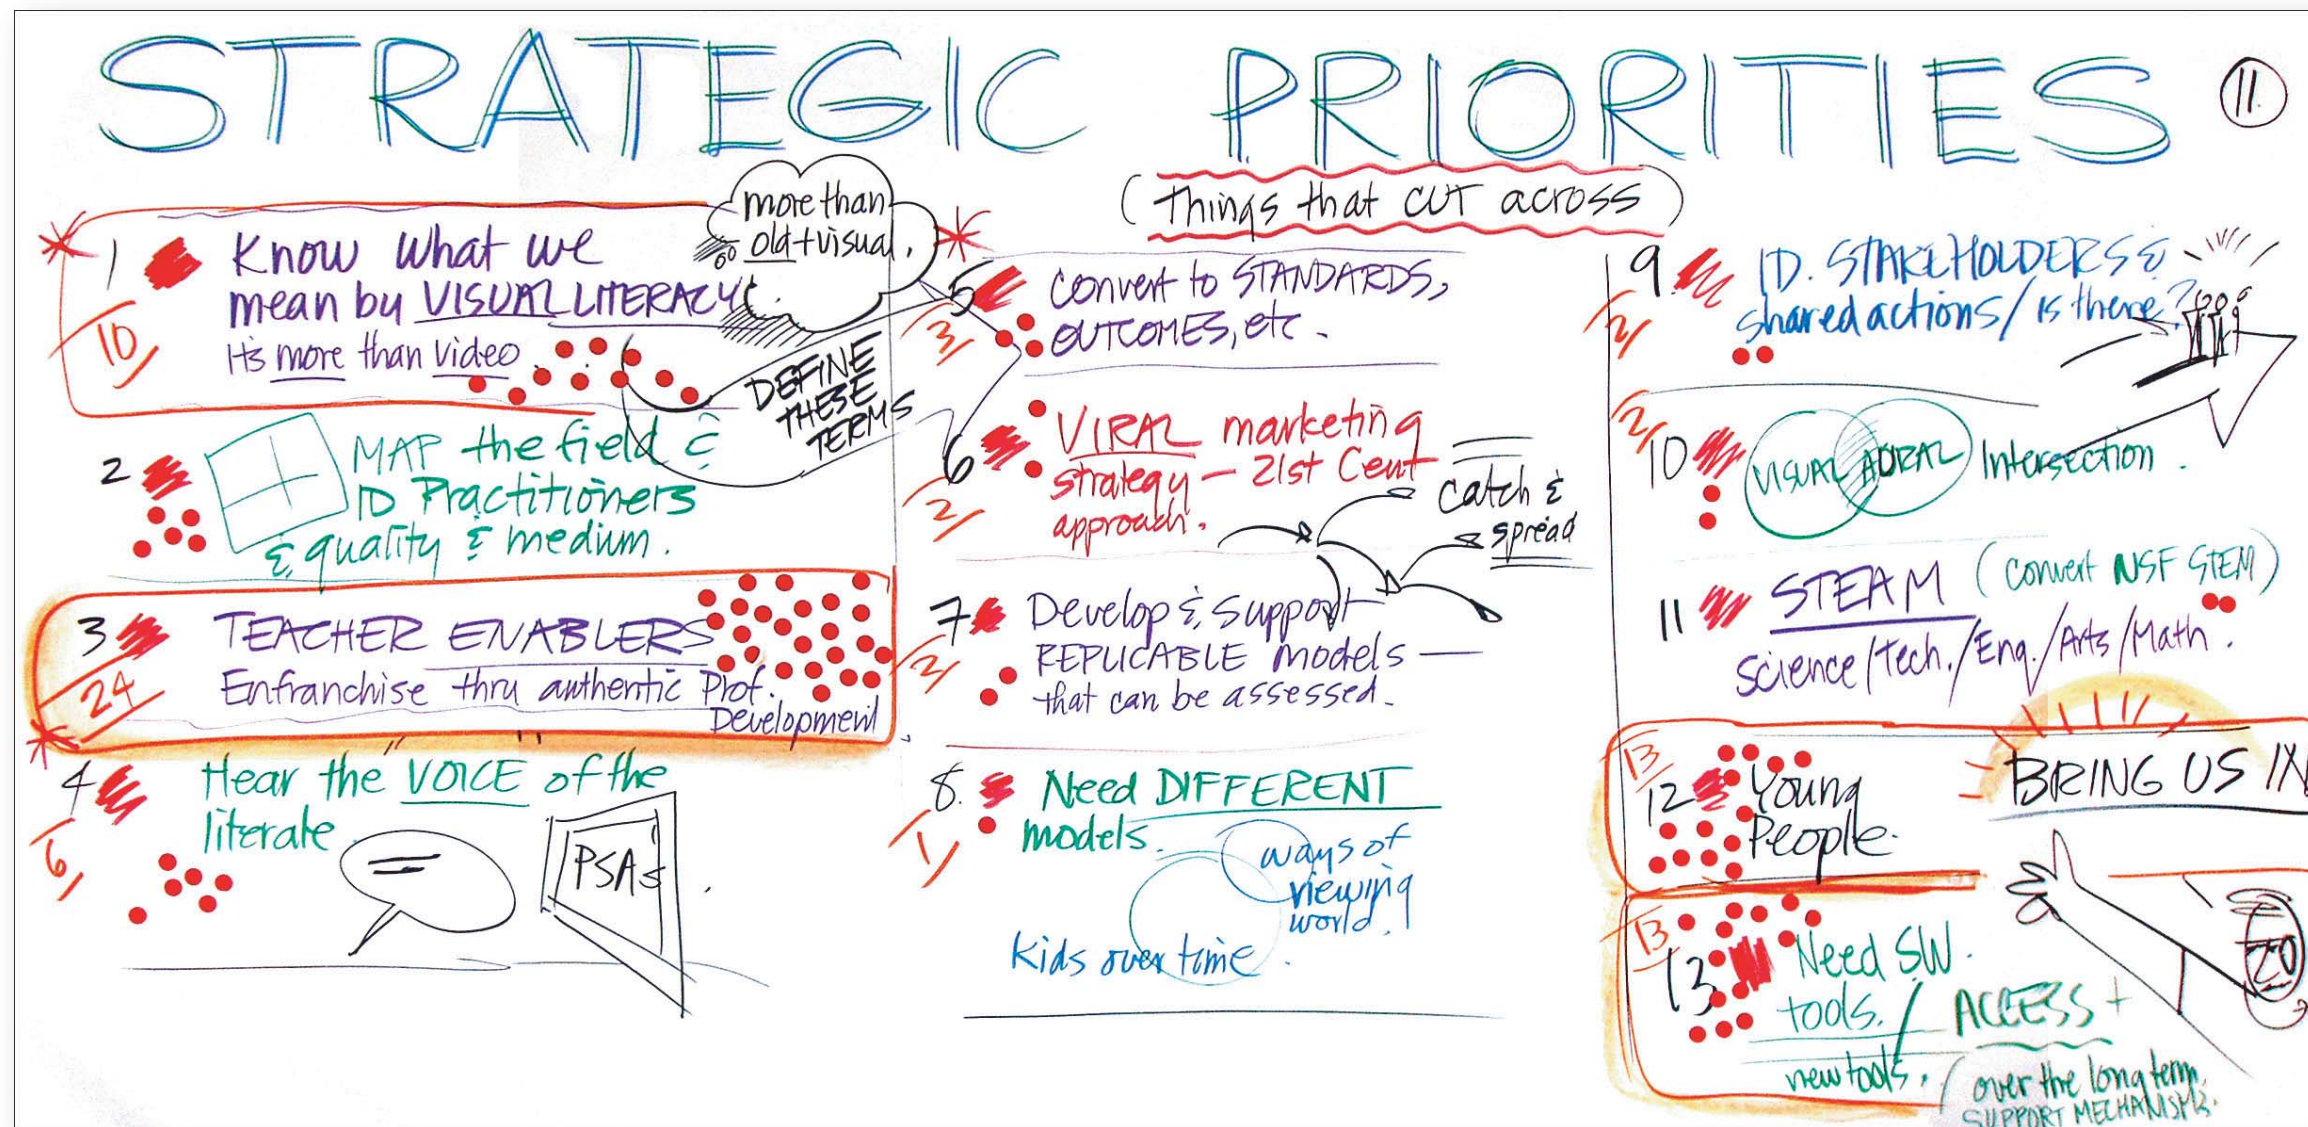 STRATEGIC PRIORITIES
11.
(Things that CUT across)
1
Know what we
mean by VISUAL LITERACY
It's more than video.
10
more than
old + visual.
DEFINE
THESE
TERMS
2
MAP the field &
ID Practitioners
& quality & medium.
3
TEACHER ENABLERS
Enfranchise thru authentic Prof.
Development
24
4
Hear the VOICE of the
literate
6
PSA's
5
Convert to STANDARDS,
OUTCOMES, etc.
3
6
VIRAL marketing
strategy – 21st Cent
approach.
2
Catch &
spread
7
Develop & Support
REPLICABLE models –
that can be assessed.
2
8.
Need DIFFERENT
models.
1
ways of
viewing
world.
Kids over time.
9
ID. STAKEHOLDERS &
shared actions/is there?
2
10
VISUAL AURAL Intersection.
2
11
STEAM (convert NSF STEM)
Science/Tech./Eng./Arts/Math.
13
12
Young
People.
BRING US IN
13
13
Need SW.
tools. / ACCESS +
new tools.
over the long term.
SUPPORT MECHANISMS.